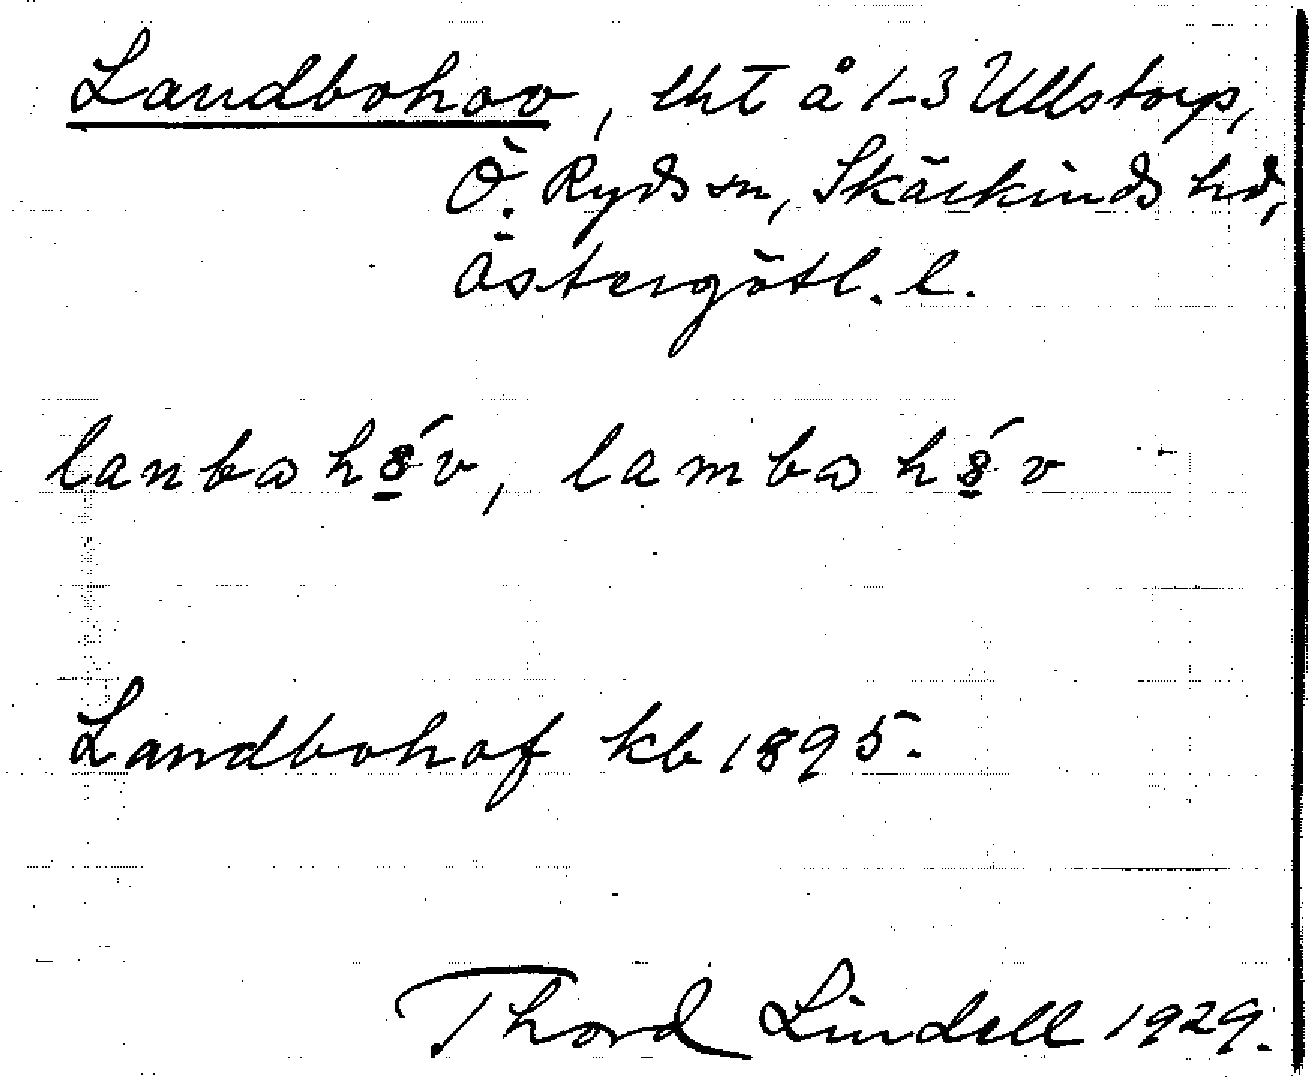 Landbohov, lht å 1-3 Ullstorp,
Ö. Ryds sn, Skärkinds hd,
Östergötl. l.
Landbohof kb 1895.
Thord Lindell 1929.